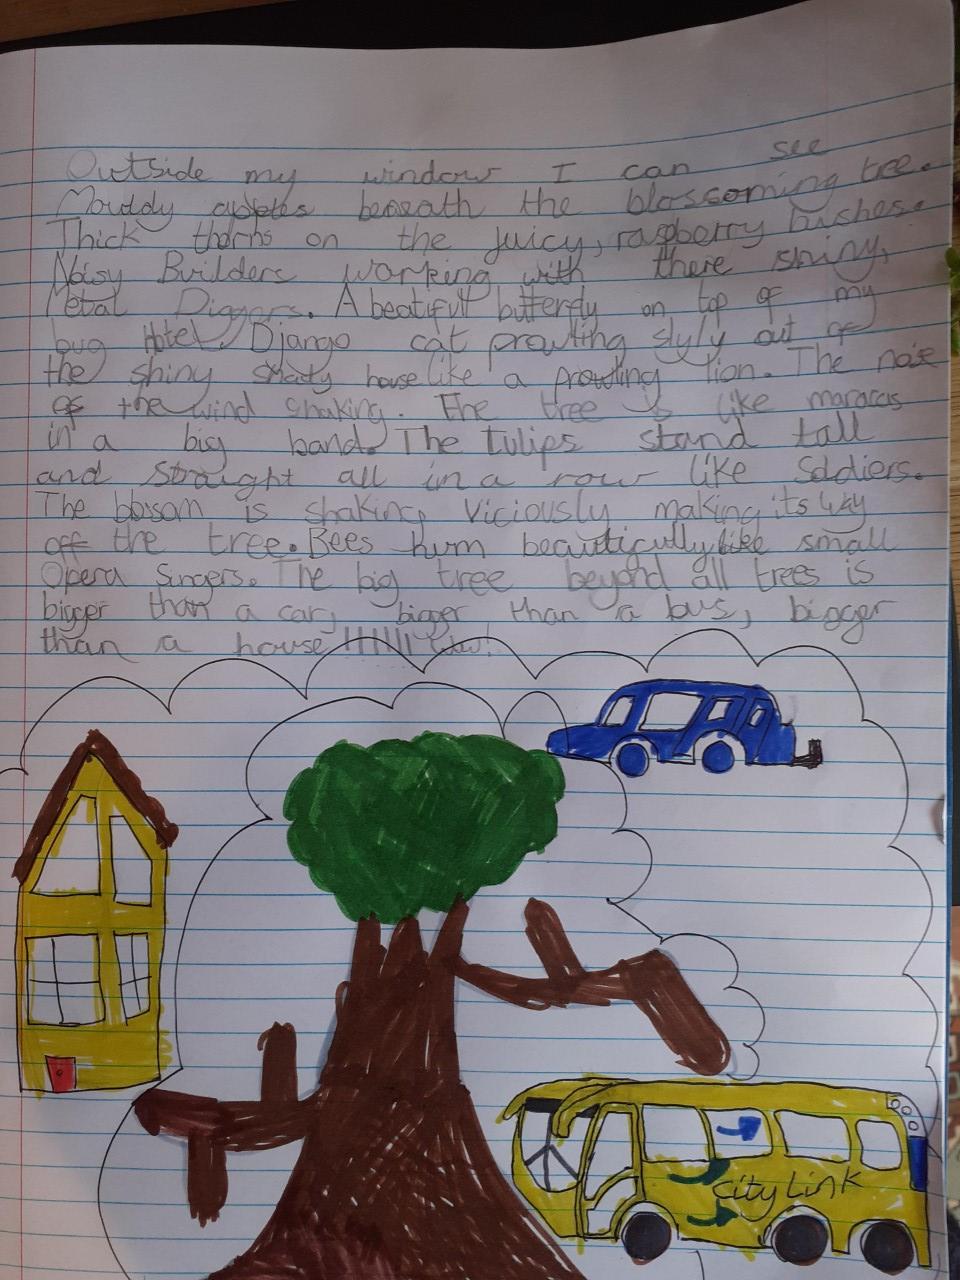 Outside my window I can see
Mouldy apples beneath the blossoming tree.
Thick thorns on the juicy, raspberry bushes.
Noisy Builders working with there shiny,
Metal Diggers. A beatiful butterfly on top of my
bug Hotel. Django cat prowling slyly out of
the shiny shady house like a prowling lion. The noise
of the wind shaking. The tree is like maracas
in a big band. The tulips stand tall
and straight all in a row like Soldiers.
The blosom is shaking viciously making its way
off the tree. Bees hum beautifully like small
Opera Singers. The big tree beyond all trees is
bigger than a car, bigger than a bus, bigger
than a house !!!!!!!
City Link